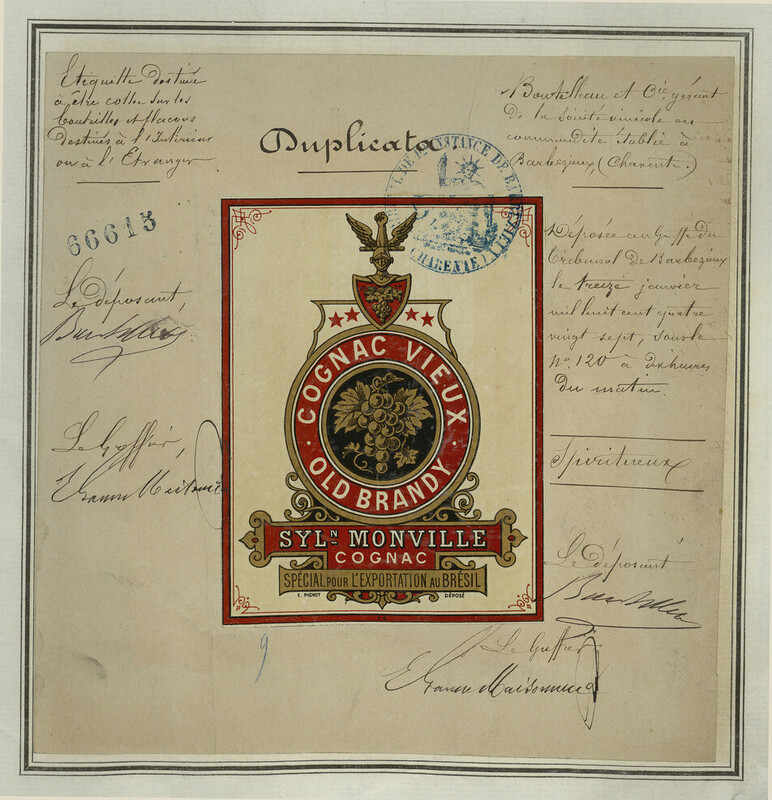 Etiquette destinée
à être collée sur les
bouteilles et flacons
destinés à l'Intérieur
ou à l'Etranger
Duplicata
Boutelleau et Cie gérant
de la Société vinicole en
commandite établie à
Barbezieux (Charente.)
66615
Le déposant,
Boutelleau
Le Greffier,
Déposée au Greffe du
Tribunal de Barbezieux
le treize janvier
mil huit cent quatre
vingt sept, sous le
No. 120 à dix heures
du matin.
Spiritueux
Le déposant
Boutelleau
Le Greffier
INSTANCE DE
CHARENTE
COGNAC VIEUX
OLD BRANDY
SYLN MONVILLE
COGNAC
SPÉCIAL POUR L'EXPORTATION AU BRÉSIL
E. PICHOT DÉPOSÉ
9